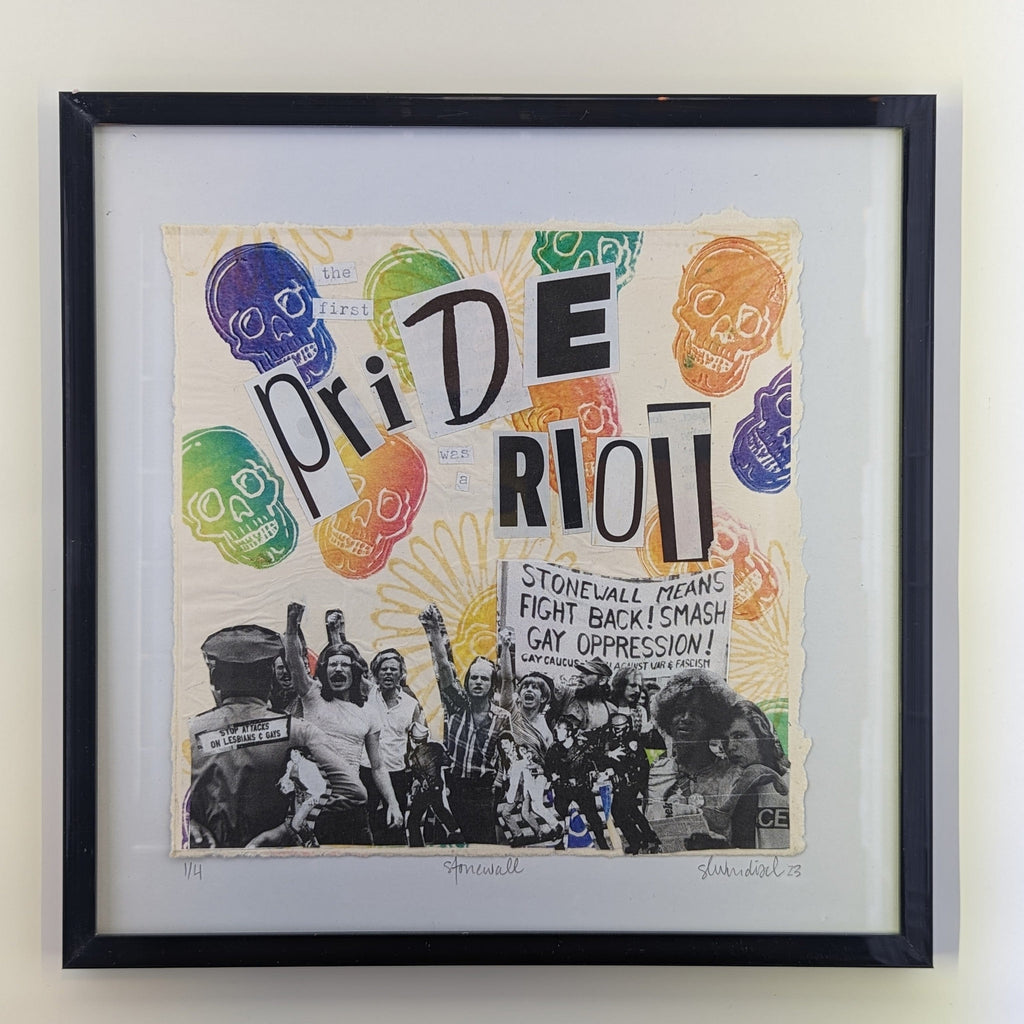 the
first
PriDE
was
a
RIOT
STONEWALL MEANS
FIGHT BACK! SMASH
GAY OPPRESSION!
GAY CAUCUS AGAINST WAR & FASCISM
STOP ATTACKS
ON LESBIANS & GAYS
CE
1/4
stonewall
23